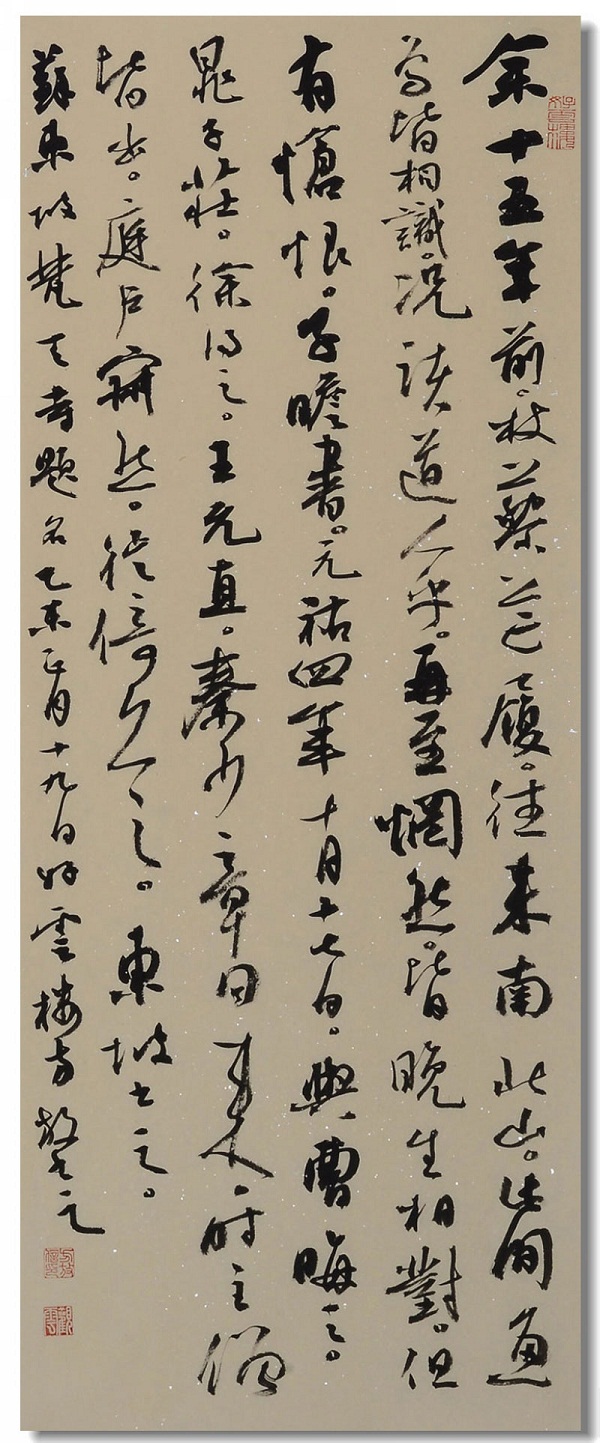 余十五年前。杖藜芒履。往来南北山。此間魚
鳥皆相識。况諸道人乎。再至惘然。皆晚生相對。但
有愴恨。子瞻書。元祐四年十月十七日。與曹晦之。
晁子莊。徐得之。王元直。秦少章同来。時主僧
皆出。庭户寂然。徙倚久之。東坡書之。
蘇東坡梵天寺題名乙未正月十九日好雲樓方書之